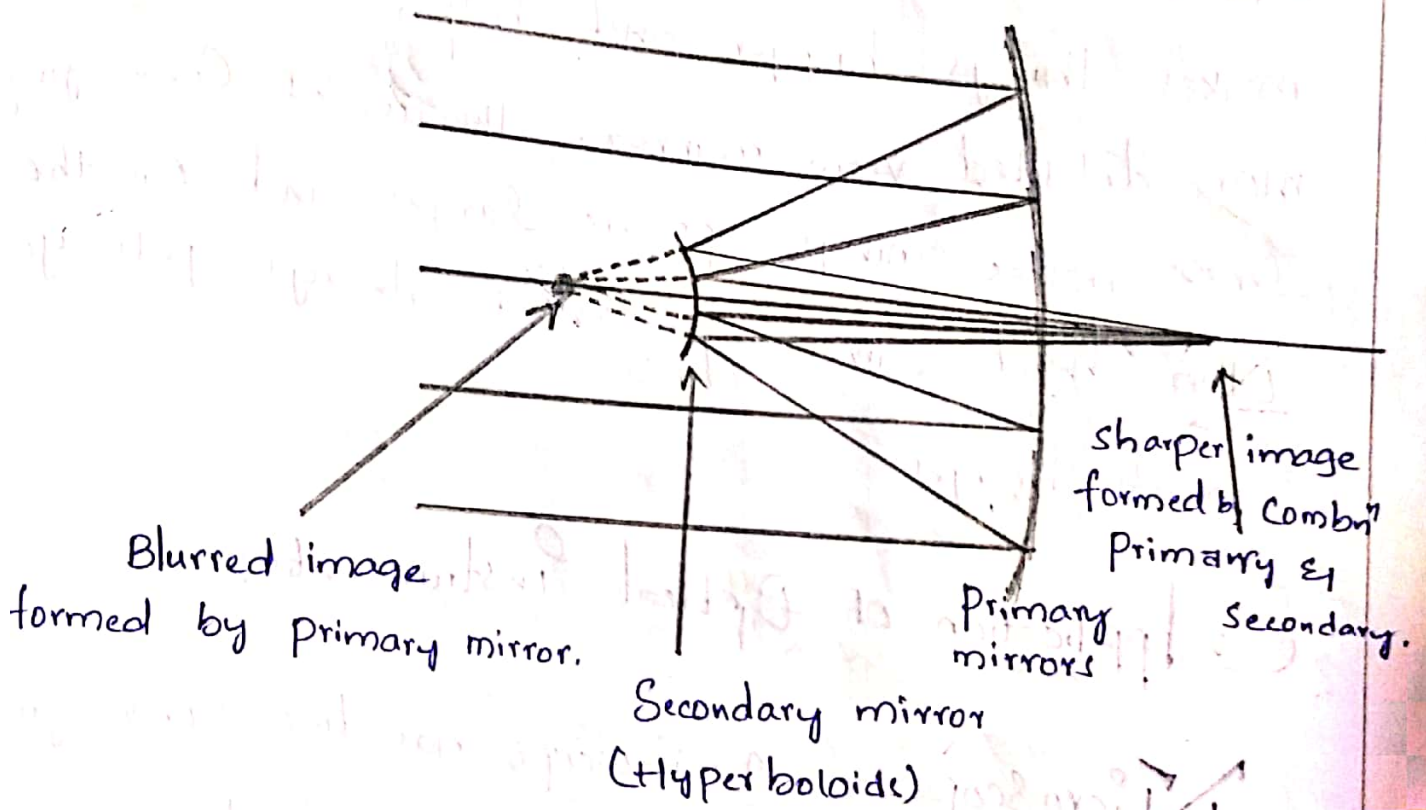 Blurred image
formed by primary mirror.
Secondary mirror
(Hyperboloide)
Primary
mirrors
sharper image
formed by Combnⁿ
Primarry &
Secondary.